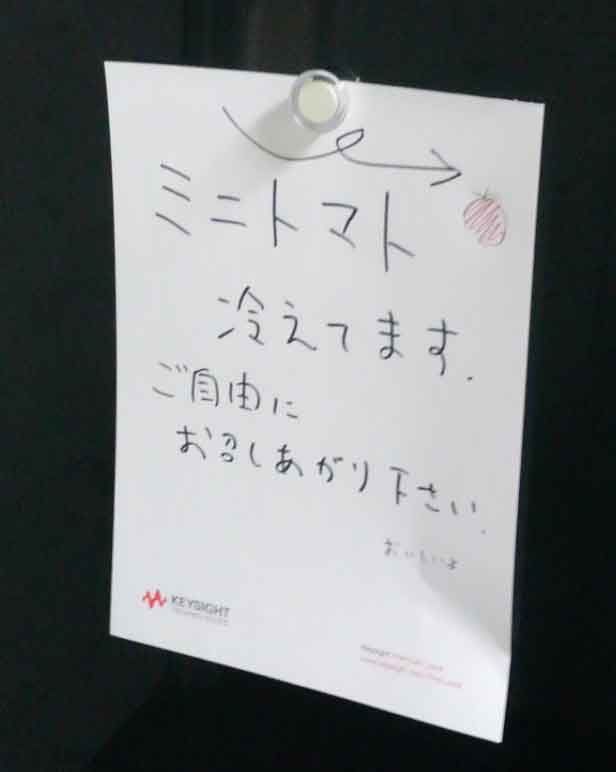 ミニトマト
冷えてます.
ご自由に
お召しあがり下さい.
おいしいよ
KEYSIGHT
TECHNOLOGIES